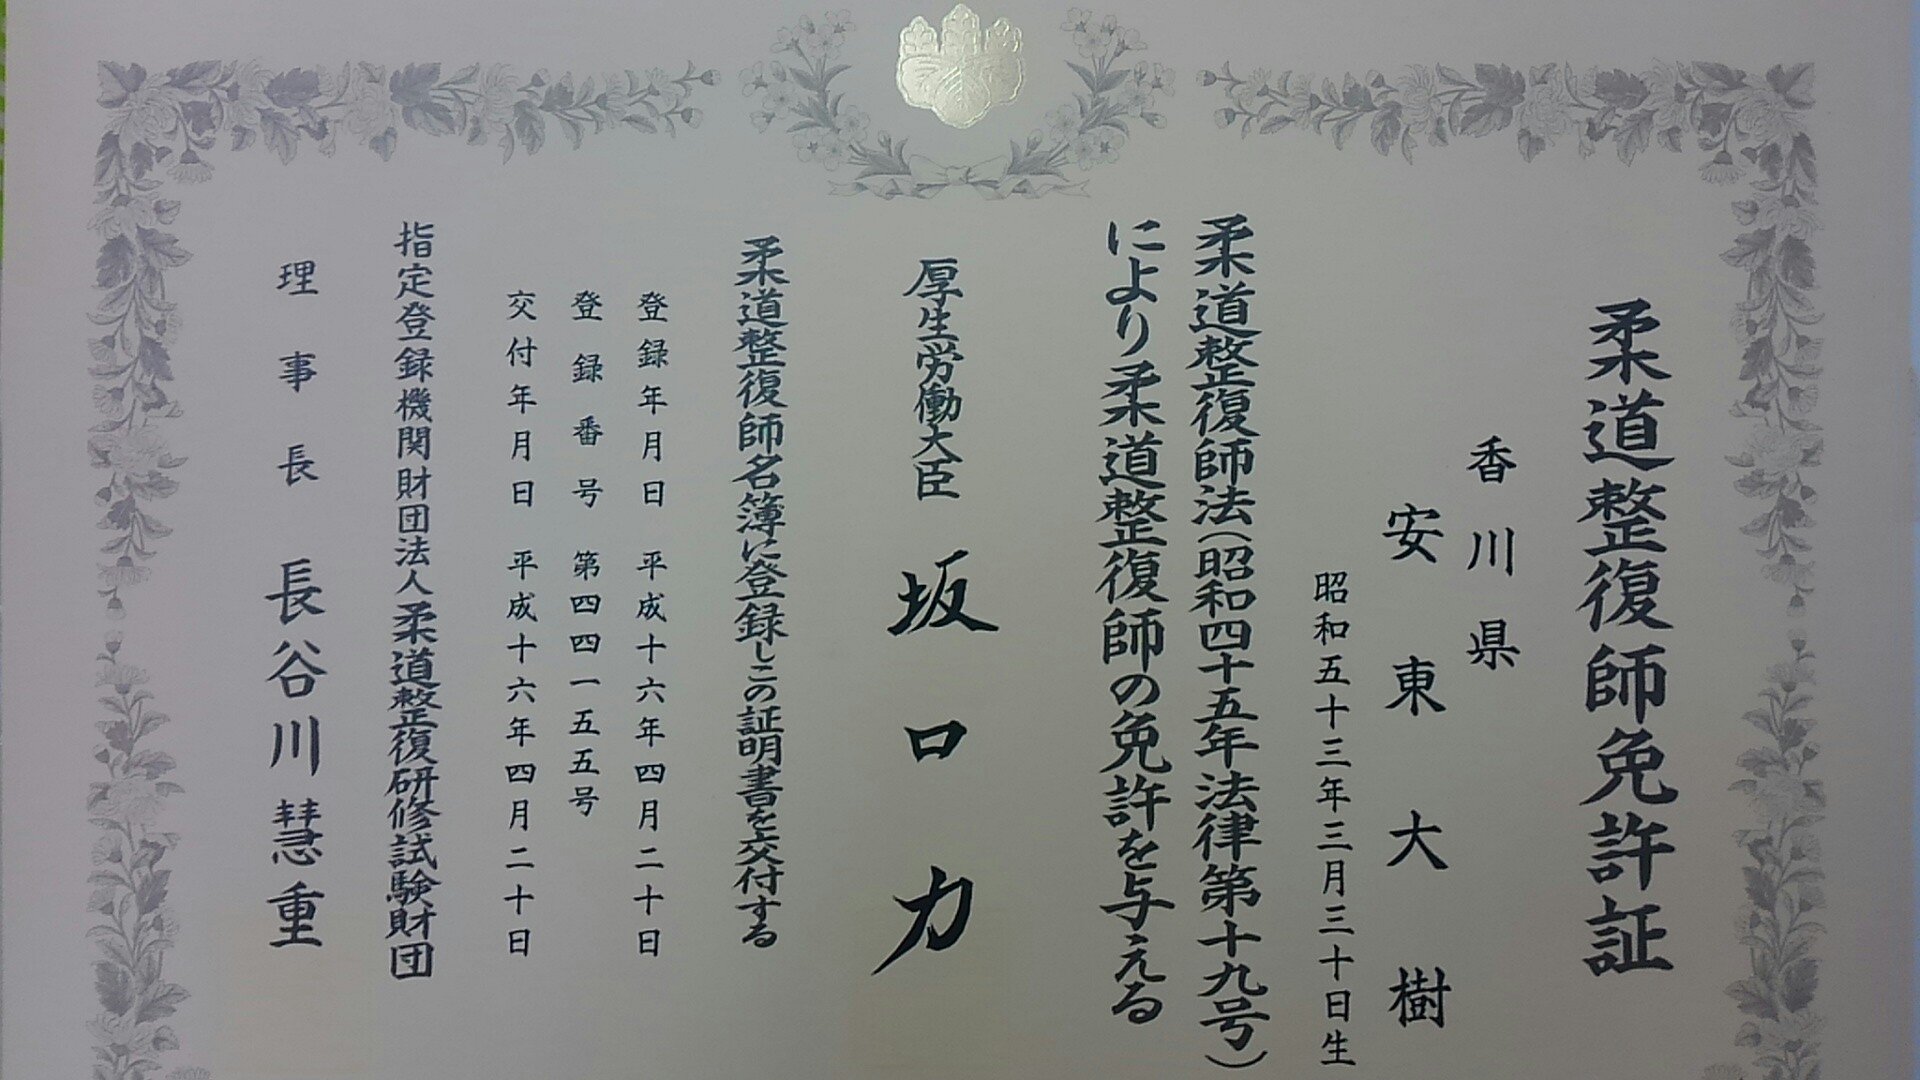 柔道整復師免許証
香川県
安東大樹
昭和五十三年三月三十日生
柔道整復師法(昭和四十五年法律第十九号)
により柔道整復師の免許を与える
厚生労働大臣 坂口力
柔道整復師名簿に登録しこの証明書を交付する
登録年月日 平成十六年四月二十日
登録番号 第四四一五五号
交付年月日 平成十六年四月二十日
指定登録機関財団法人柔道整復研修試験財団
理事長 長谷川慧重